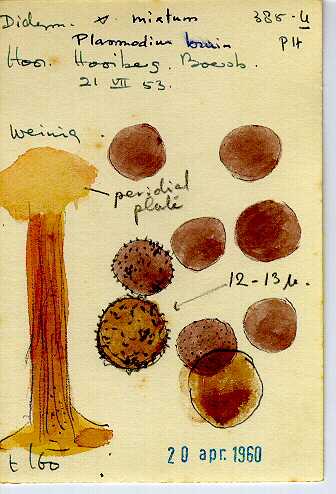 Didym. mixtum 385-4
Plasmodium bruin PH
Hooiberg.
21 VII 53.
weinig.
peridial
plate
12-13 µ.
t 160
20 apr. 1960